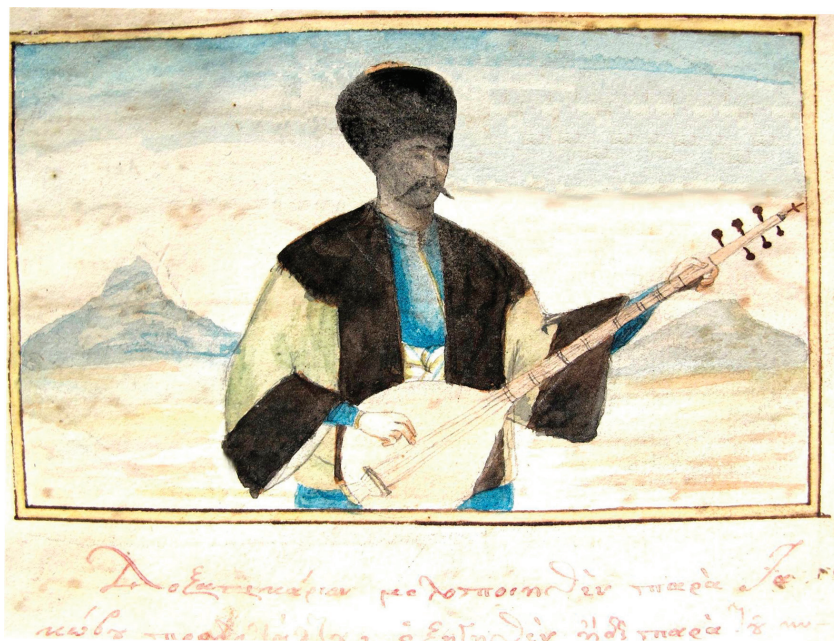 Δοξαστικάριον μελοποιηθὲν παρὰ Ἰα
κώβου ἐξηγηθὲν ἤδη παρὰ